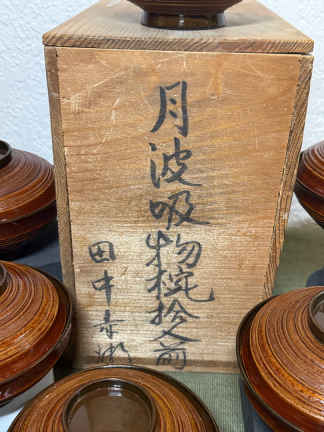 月波吸物椀拾人前
田中表